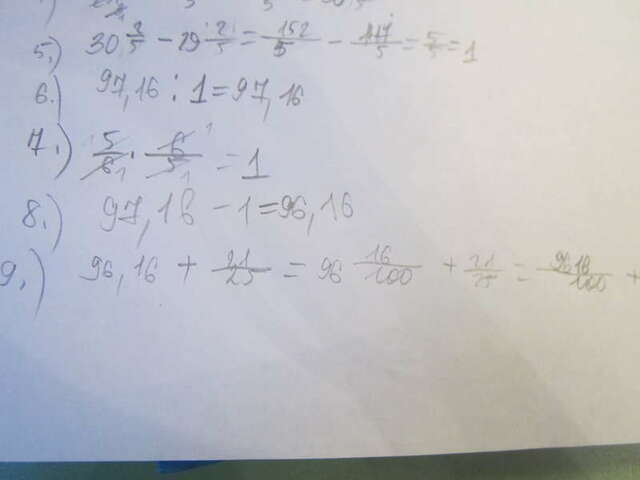 5.) 30 2/5 - 29 2/5 = 152/5 - 147/5 = 5/5 = 1
6.) 97,16 : 1 = 97,16
7.) 5/6 · 6/5 = 1
8.) 97,16 - 1 = 96,16
9.) 96,16 + 21/25 = 96 16/100 + 21/25 = 9616/100 +